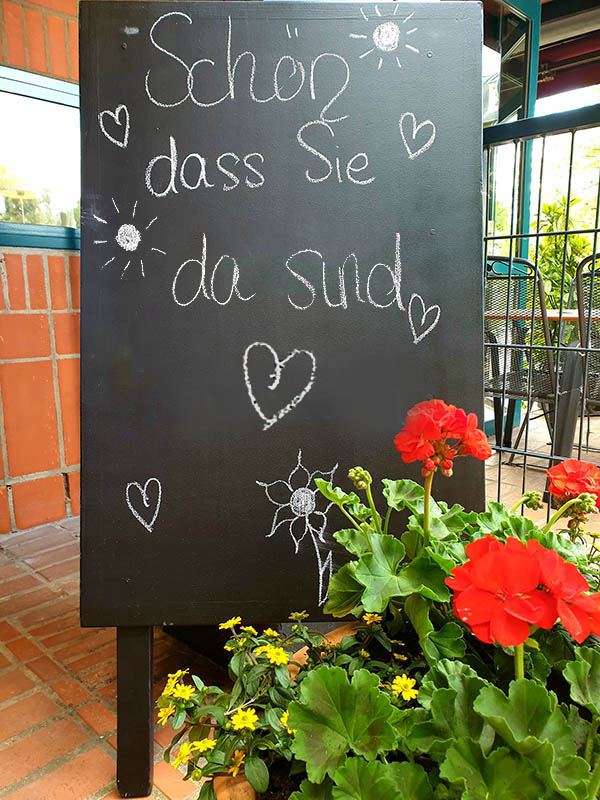 Schön
dass Sie
da sind